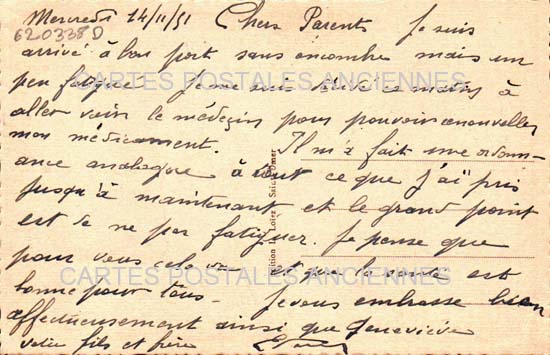 Mercredi 14/11/51 Chers Parents Je suis
620338D
arrivé à bon port sans encombre mais un
peu fatigué Je me suis ce matin à
CARTES POSTALES ANCIENNES
aller voir le médecin pour pouvoir renouveller
mon médicament. Il m'a fait une ordonn-
ance analogue à tout ce que j'ai pris
jusqu'à maintenant et le grand point
est de ne pas fatiguer. Je pense que
pour vous cela va et que la santé est
CARTES POSTALES ANCIENNES
bonne pour tous. Je vous embrasse bien
affectueusement ainsi que Geneviève
votre fils et frère
Edition Loisz Saint-Omer